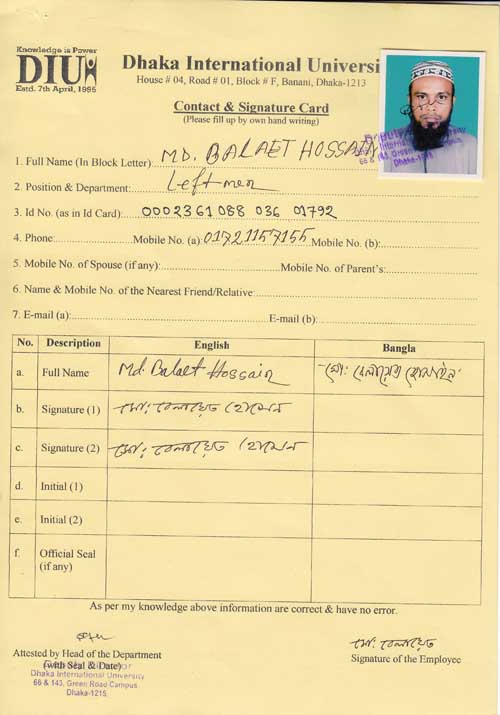 Knowledge is Power
DIU
Estd. 7th April, 1995
Dhaka International Universi
House # 04, Road # 01, Block # F, Banani, Dhaka-1213
Contact & Signature Card
(Please fill up by own hand writing)
1. Full Name (In Block Letter): MD. BALAET HOSSAIN
66 & 143, Green Road
Dhaka-1215
2. Position & Department: Leftmen
3. Id No. (as in Id Card): 0002361 088 036 01792
4. Phone: Mobile No. (a) 01721157155 Mobile No. (b):
5. Mobile No. of Spouse (if any): Mobile No. of Parent's:
6. Name & Mobile No. of the Nearest Friend/Relative:
7. E-mail (a): E-mail (b):
No. Description English Bangla
a. Full Name Md. Balaet Hossain মো: বেলায়েত হোসাইন
b. Signature (1) মো: বেলায়েত হোসেন
c. Signature (2) মো: বেলায়েত হোসেন
d. Initial (1)
e. Initial (2)
f. Official Seal
(if any)
As per my knowledge above information are correct & have no error.
মো: বেলায়েত
Attested by Head of the Department Signature of the Employee
(with Seal & Date)
Dhaka International University
66 & 143, Green Road Campus
Dhaka-1215.